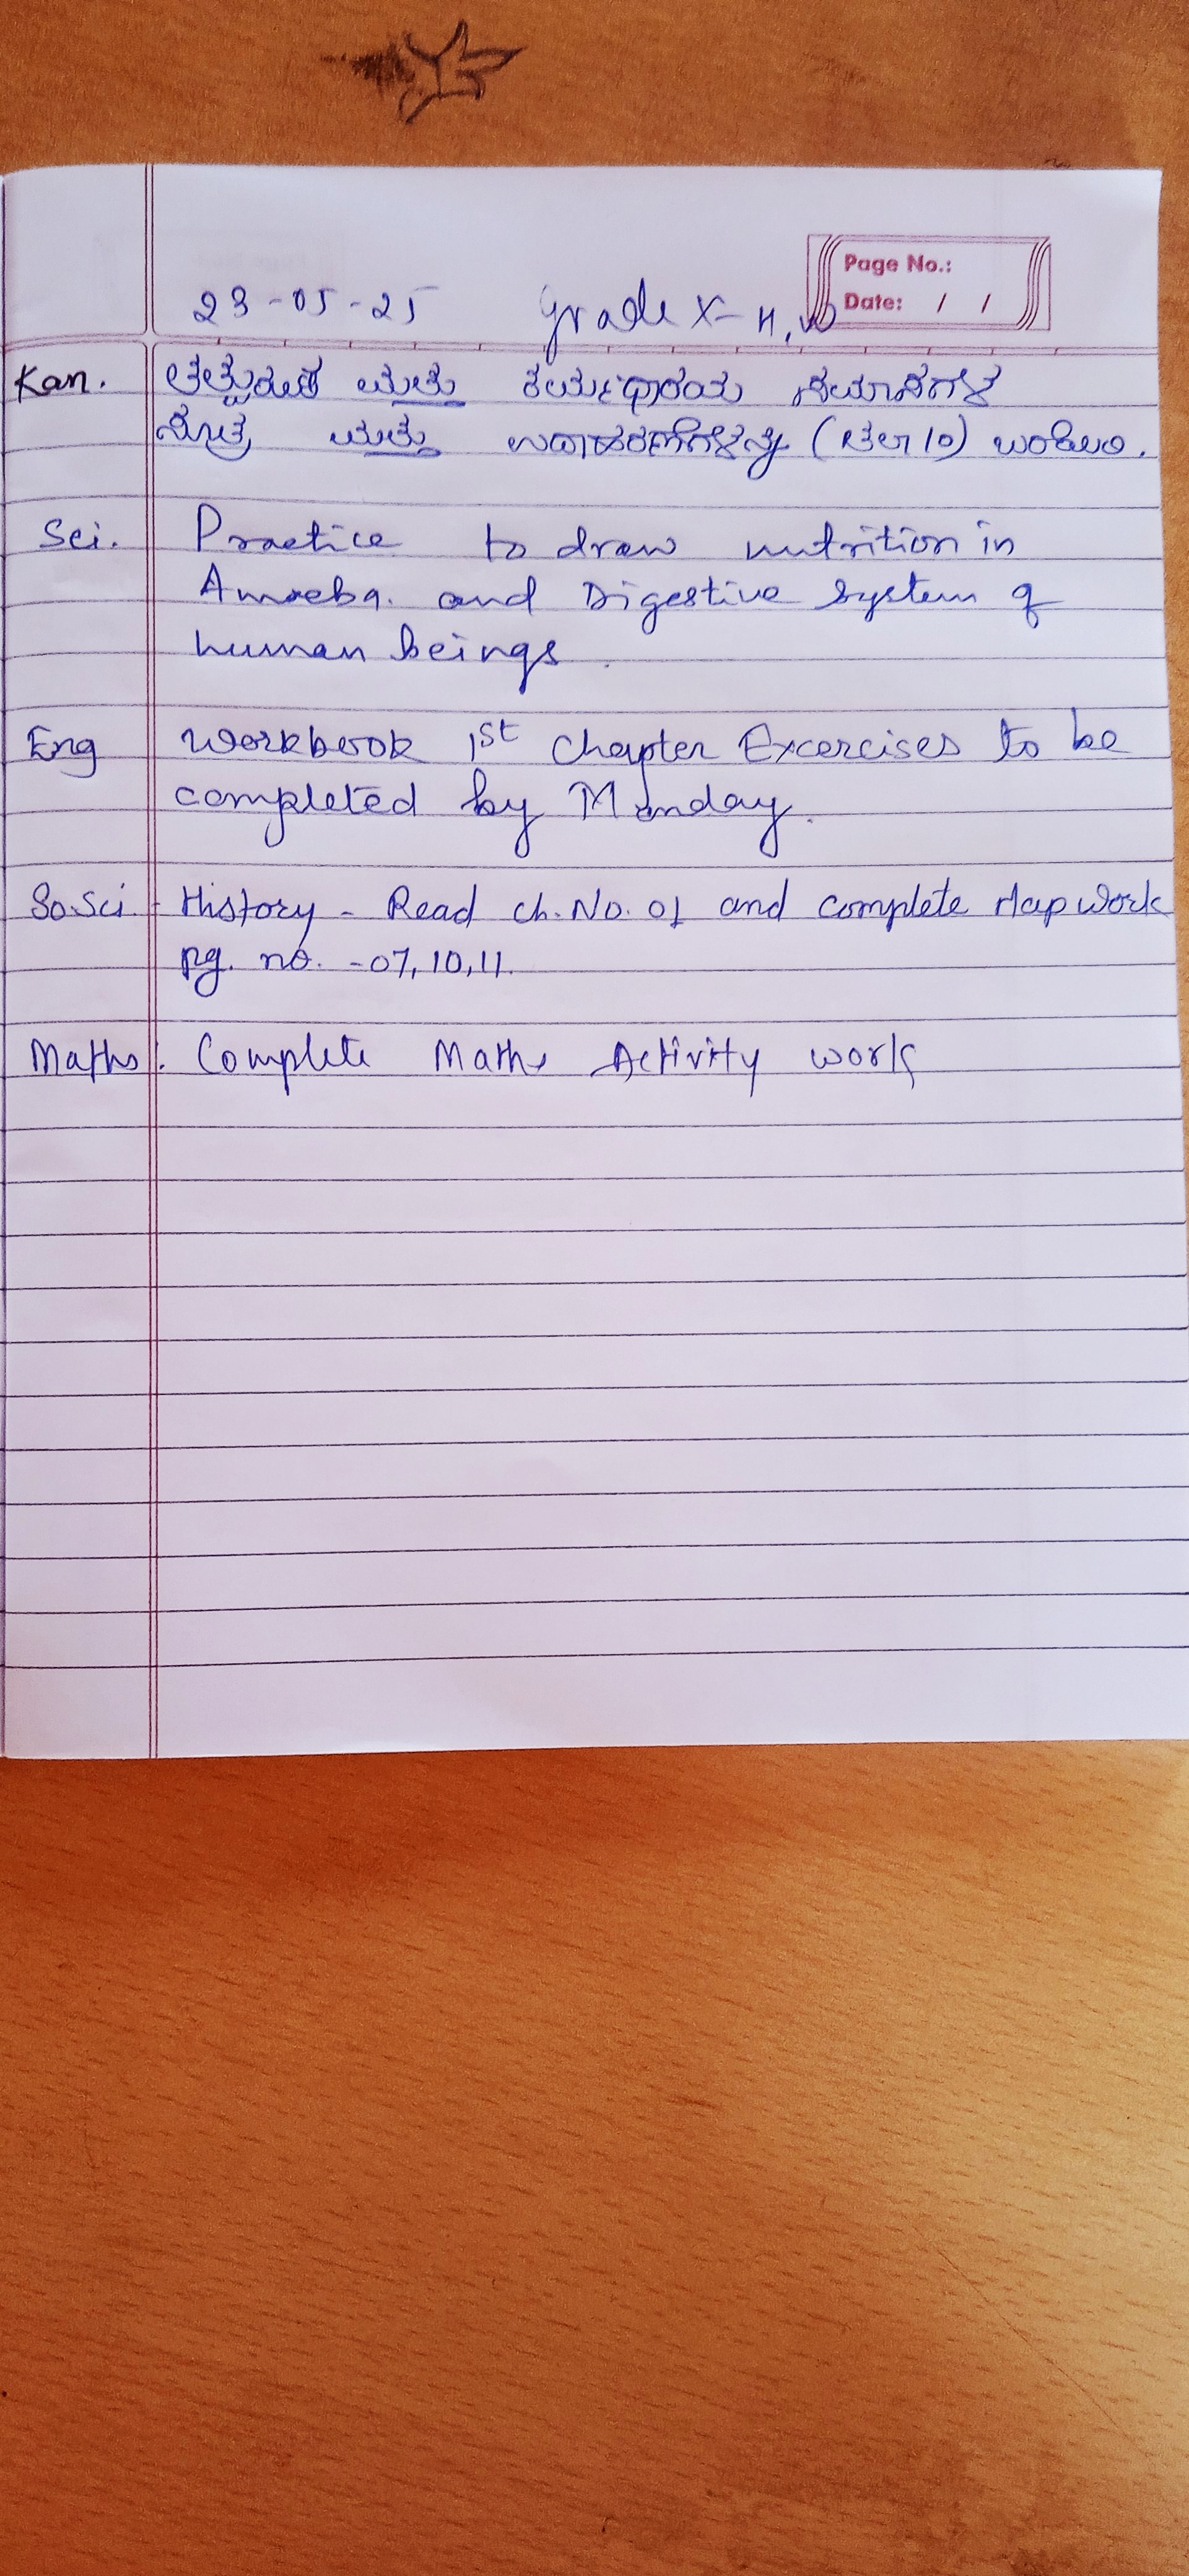 Page No.:
Date: / /
23-05-25 Grade X- H.W
Kan. ತತ್ಪುರುಷ ಮತ್ತು ಕರ್ಮಧಾರಯ ಸಮಾಸಗಳ
ಸೂತ್ರ ಮತ್ತು ಉದಾಹರಣೆಗಳನ್ನು (ತಲಾ 10) ಬರೆಯಿರಿ.
Sci. Practice to draw nutrition in
Amoeba. and Digestive System of
human beings.
Eng Workbook 1st Chapter Excercises to be
completed by Monday.
So.Sci - History - Read ch. No. 01 and complete Map work
pg. no. - 07, 10, 11.
Maths: Complete Maths Activity work